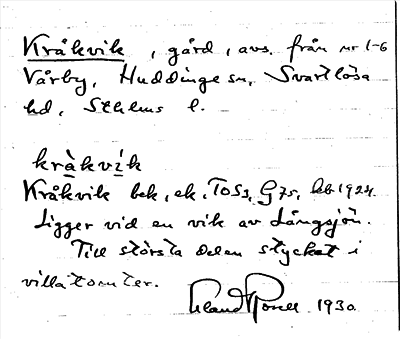 Kråkvik, gård, avs. från nr 1-6
Vårby, Huddinge sn, Svartlösa
hd, Sthlms l.
kràkvík
Kråkvik bek, ek, TOS3, G75, hb 1924.
Ligger vid en vik av Långsjön.
Till största delen styckat i
villatomter.
1930.